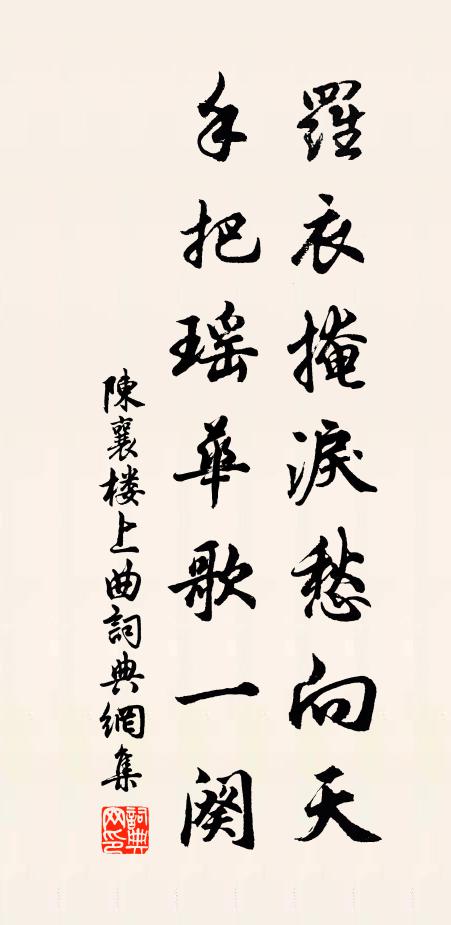 羅衣掩淚愁向天
手把瑶華歌一闋
陳襄楼上曲詞典網集
詞典网印